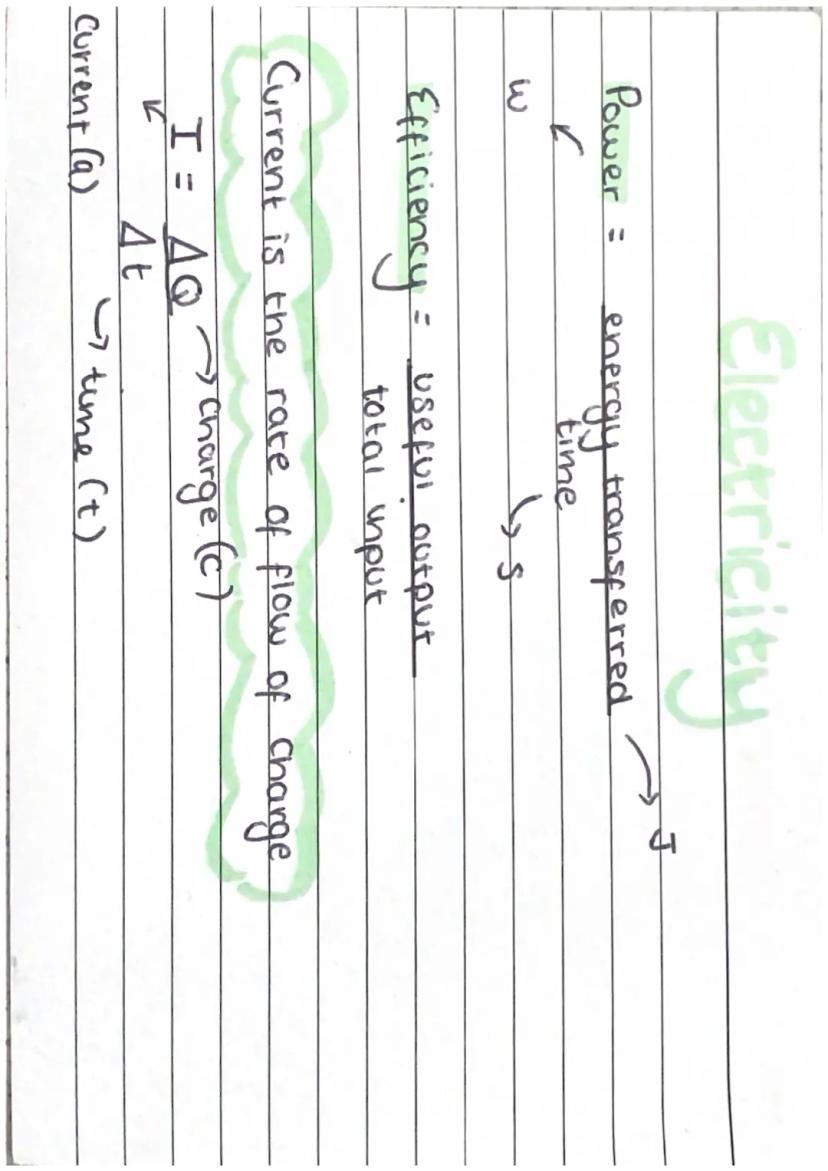 Electricity
Power = energy transferred → J
↙ time
W ↘ s
Efficiency = useful output
total input
Current is the rate of flow of charge
I = ΔQ → Charge (C)
↙ Δt
Current (a) ↘ time (t)